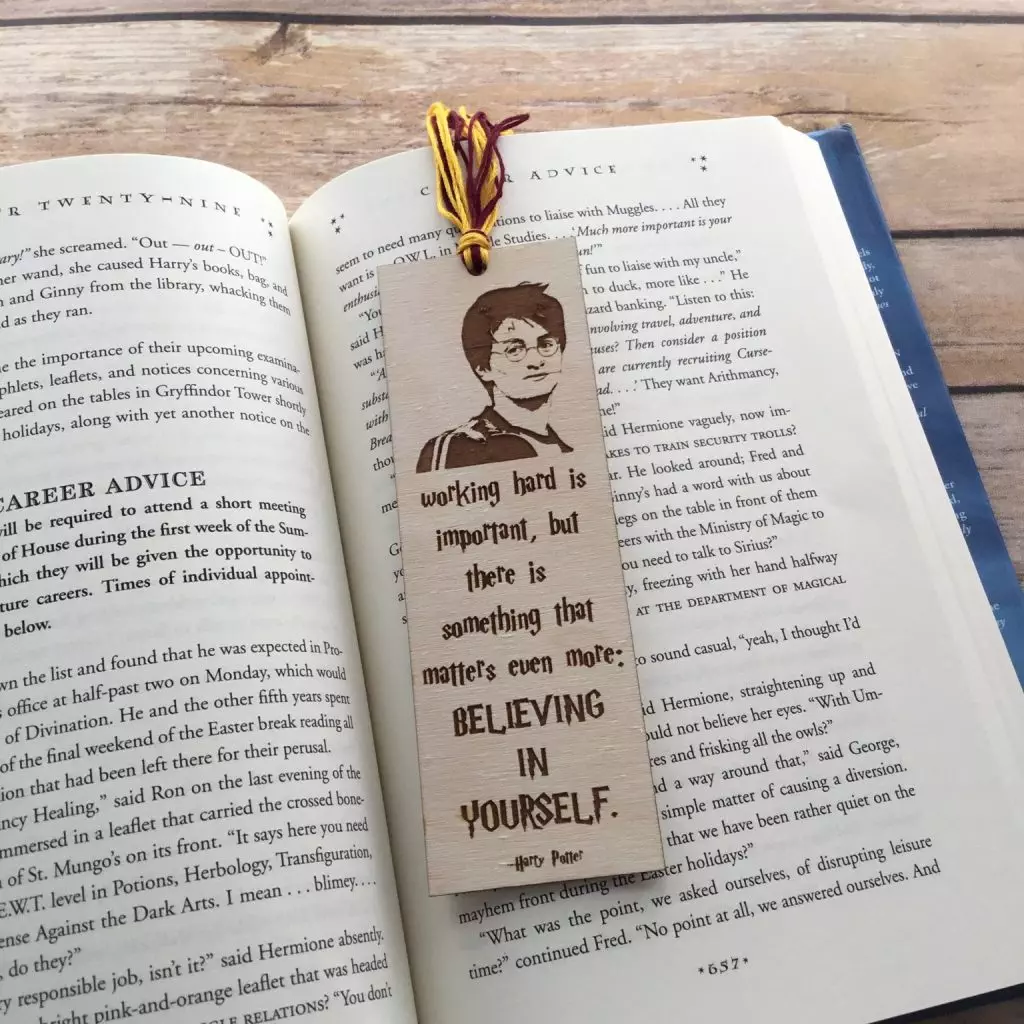 R TWENTY-NINE
ary!" she screamed. "Out — out – OUT!"
her wand, she caused Harry's books, bag, and
n and Ginny from the library, whacking them
d as they ran.
e the importance of their upcoming examina-
phlets, leaflets, and notices concerning various
eared on the tables in Gryffindor Tower shortly
holidays, along with yet another notice on the
CAREER ADVICE
will be required to attend a short meeting
of House during the first week of the Sum-
hich they will be given the opportunity to
ture careers. Times of individual appoint-
below.
wn the list and found that he was expected in Pro-
office at half-past two on Monday, which would
of Divination. He and the other fifth years spent
of the final weekend of the Easter break reading all
ion that had been left there for their perusal.
ncy Healing," said Ron on the last evening of the
mmersed in a leaflet that carried the crossed bone-
of St. Mungo's on its front. "It says here you need
E.W.T. level in Potions, Herbology, Transfiguration,
ense Against the Dark Arts. I mean . . . blimey. . . .
, do they?"
ry responsible job, isn't it?" said Hermione absently.
bright pink-and-orange leaflet that was headed
GLE RELATIONS? "You don't
C R ADVICE
seem to need many qu tions to liaise with Muggles. . . . All they
want is O.W.L. in le Studies. . . . 'Much more important is your
enthusi un!'"
"You f fun to liaise with my uncle,"
said H to duck, more like . . ." He
was ha zard banking. "Listen to this:
'A nvolving travel, adventure, and
subst uses? Then consider a position
with are currently recruiting Curse-
Brea nd. . . .' They want Arithmancy,
thou ne!"
id Hermione vaguely, now im-
me AKES TO TRAIN SECURITY TROLLS?
ar. He looked around; Fred and
inny's had a word with us about
legs on the table in front of them
eers with the Ministry of Magic to
ou need to talk to Sirius?"
y, freezing with her hand halfway
AT THE DEPARTMENT OF MAGICAL
o sound casual, "yeah, I thought I'd
id Hermione, straightening up and
ould not believe her eyes. "With Um-
res and frisking all the owls?"
d a way around that," said George,
simple matter of causing a diversion.
that we have been rather quiet on the
mayhem front during the Easter holidays?"
"What was the point, we asked ourselves, of disrupting leisure
time?" continued Fred. "No point at all, we answered ourselves. And
*657*
working hard is
important, but
there is
something that
matters even more:
BELIEVING
IN
YOURSELF.
–Harry Potter